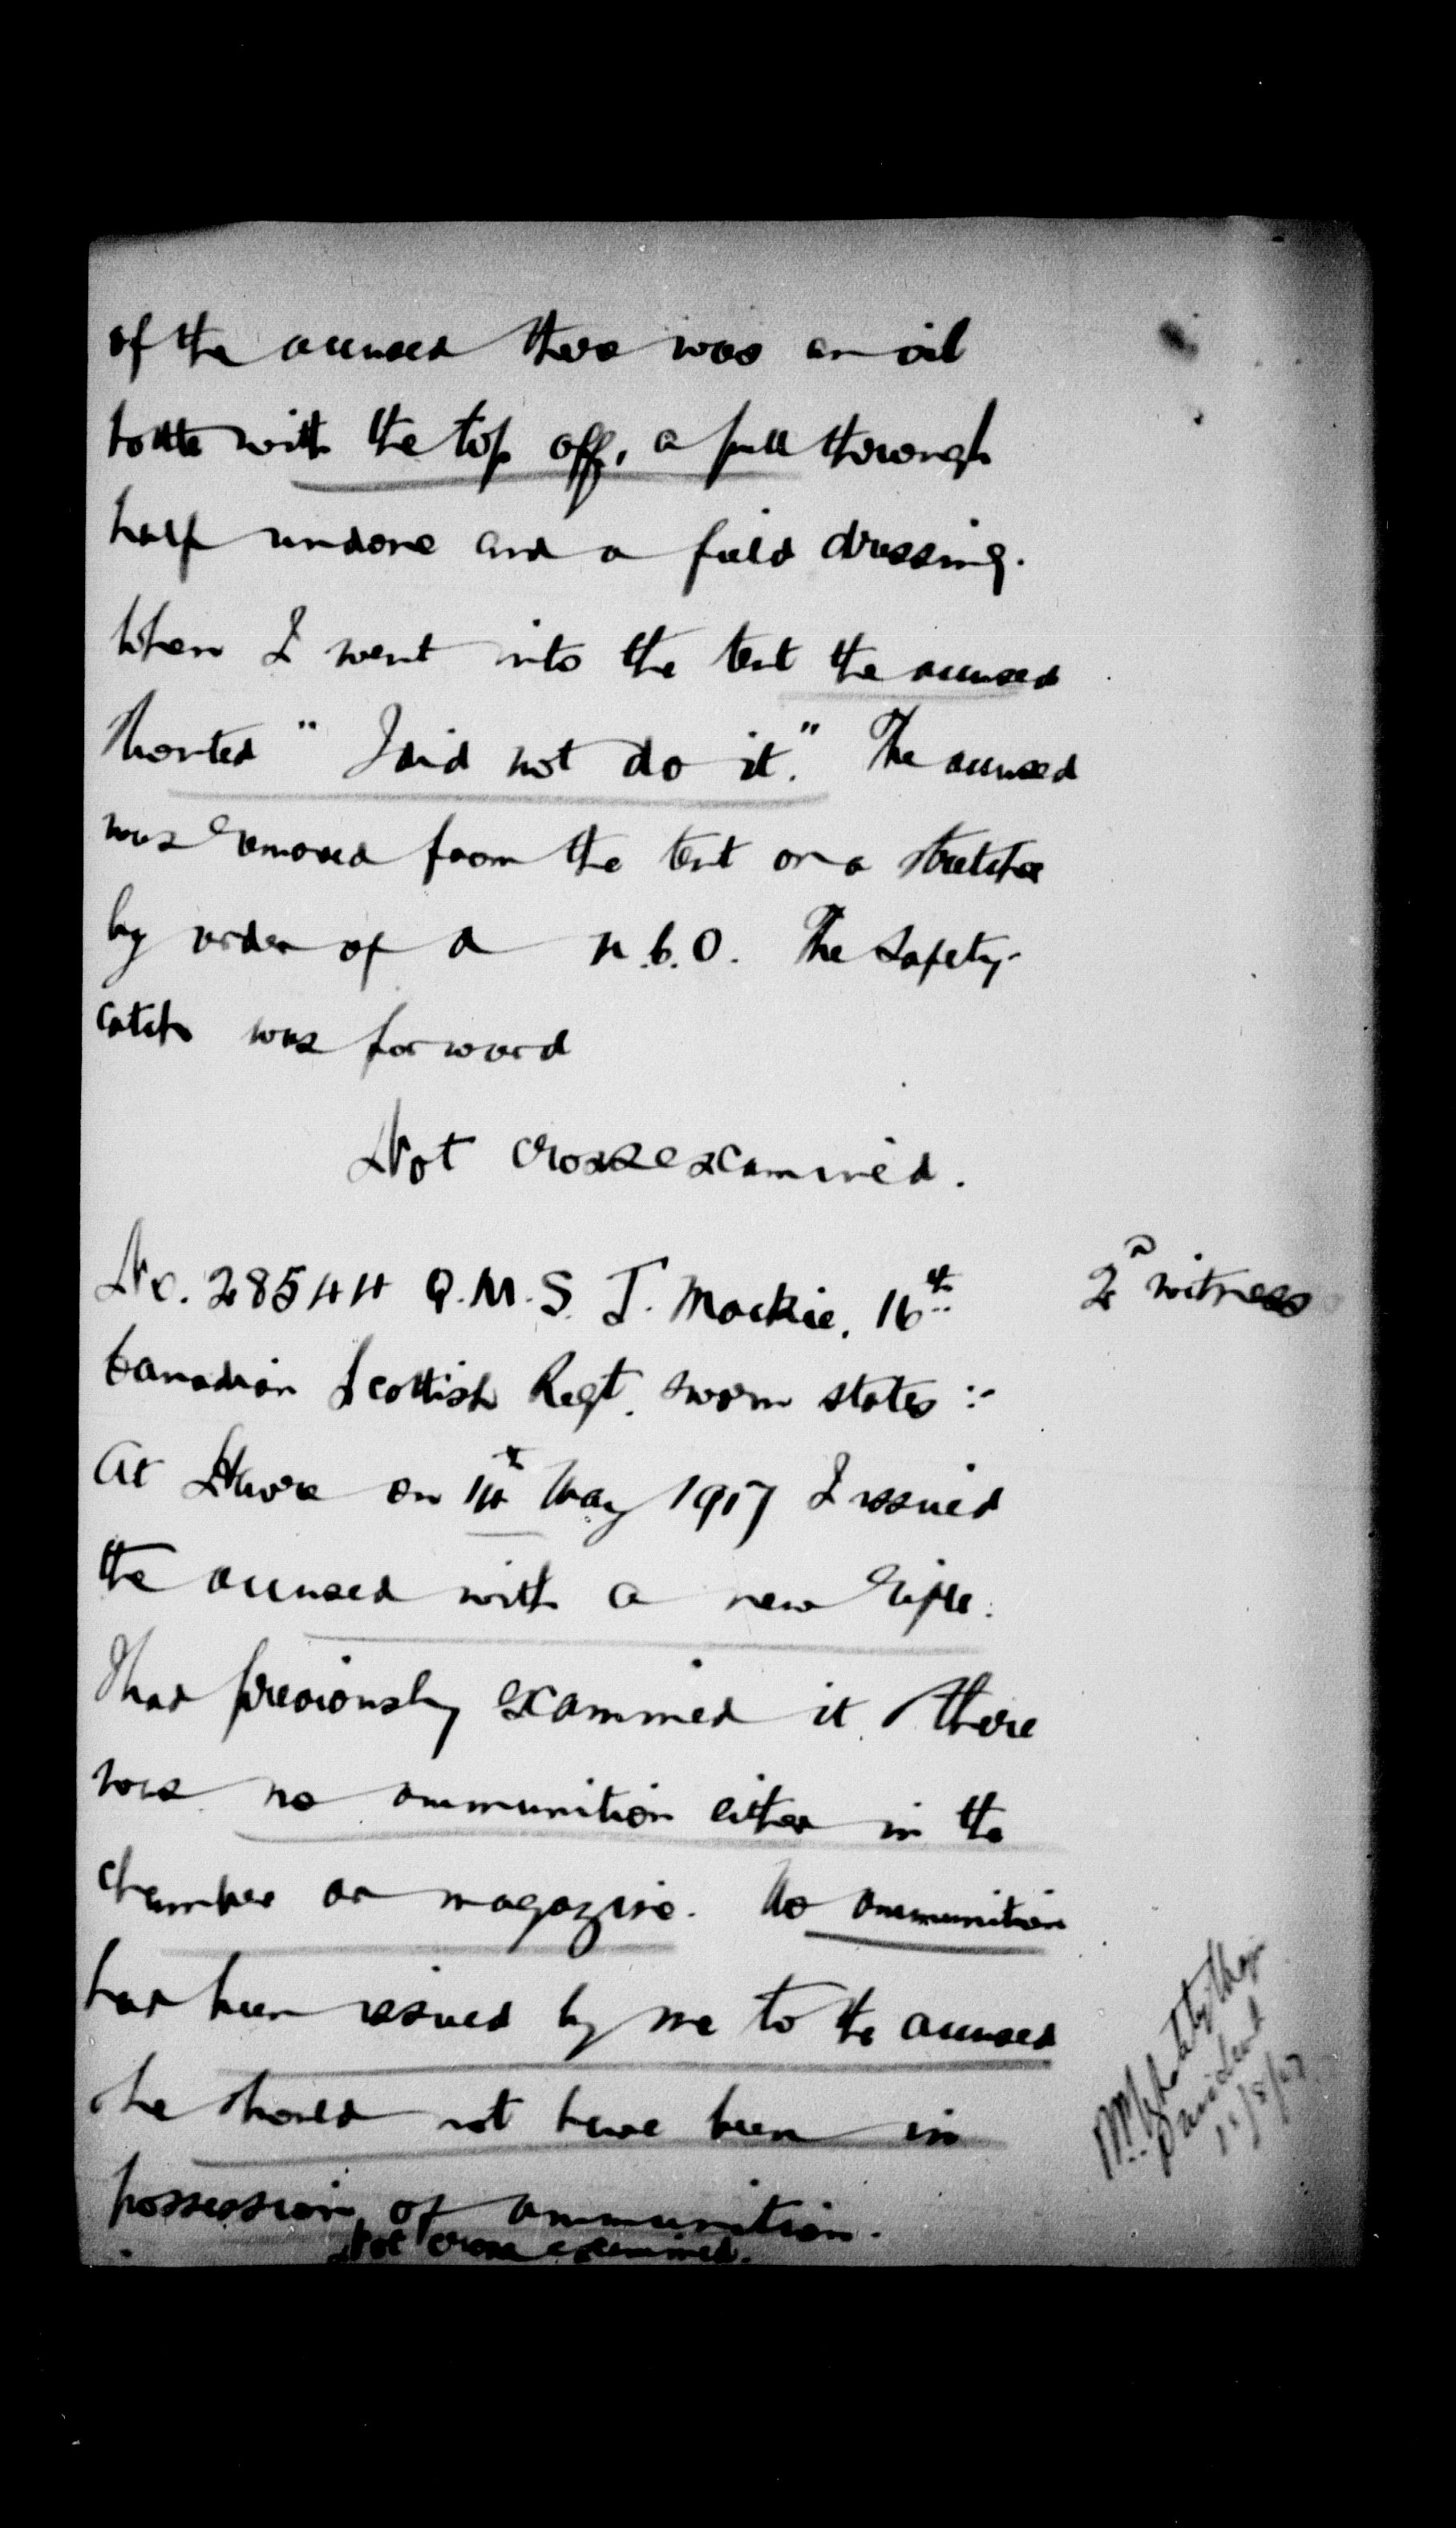 of the accused there was an oil
bottle with the top off, a pull through
half undone and a field dressing.
When I went into the tent the accused
shouted "I did not do it." The accused
was removed from the tent on a stretcher
by order of a N.C.O. The safety-
catch was forward
Not cross examined.
No. 28544 Q.M.S. J. Mackie, 16th
2nd witness
Canadian Scottish Regt. sworn states :-
At Havre on 14th May 1917 I issued
the accused with a new rifle.
I had previously examined it. There
was no ammunition either in the
chamber or magazine. No ammunition
had been issued by me to the accused
he should not have been in
possession of ammunition.
Not cross examined.
Major
President